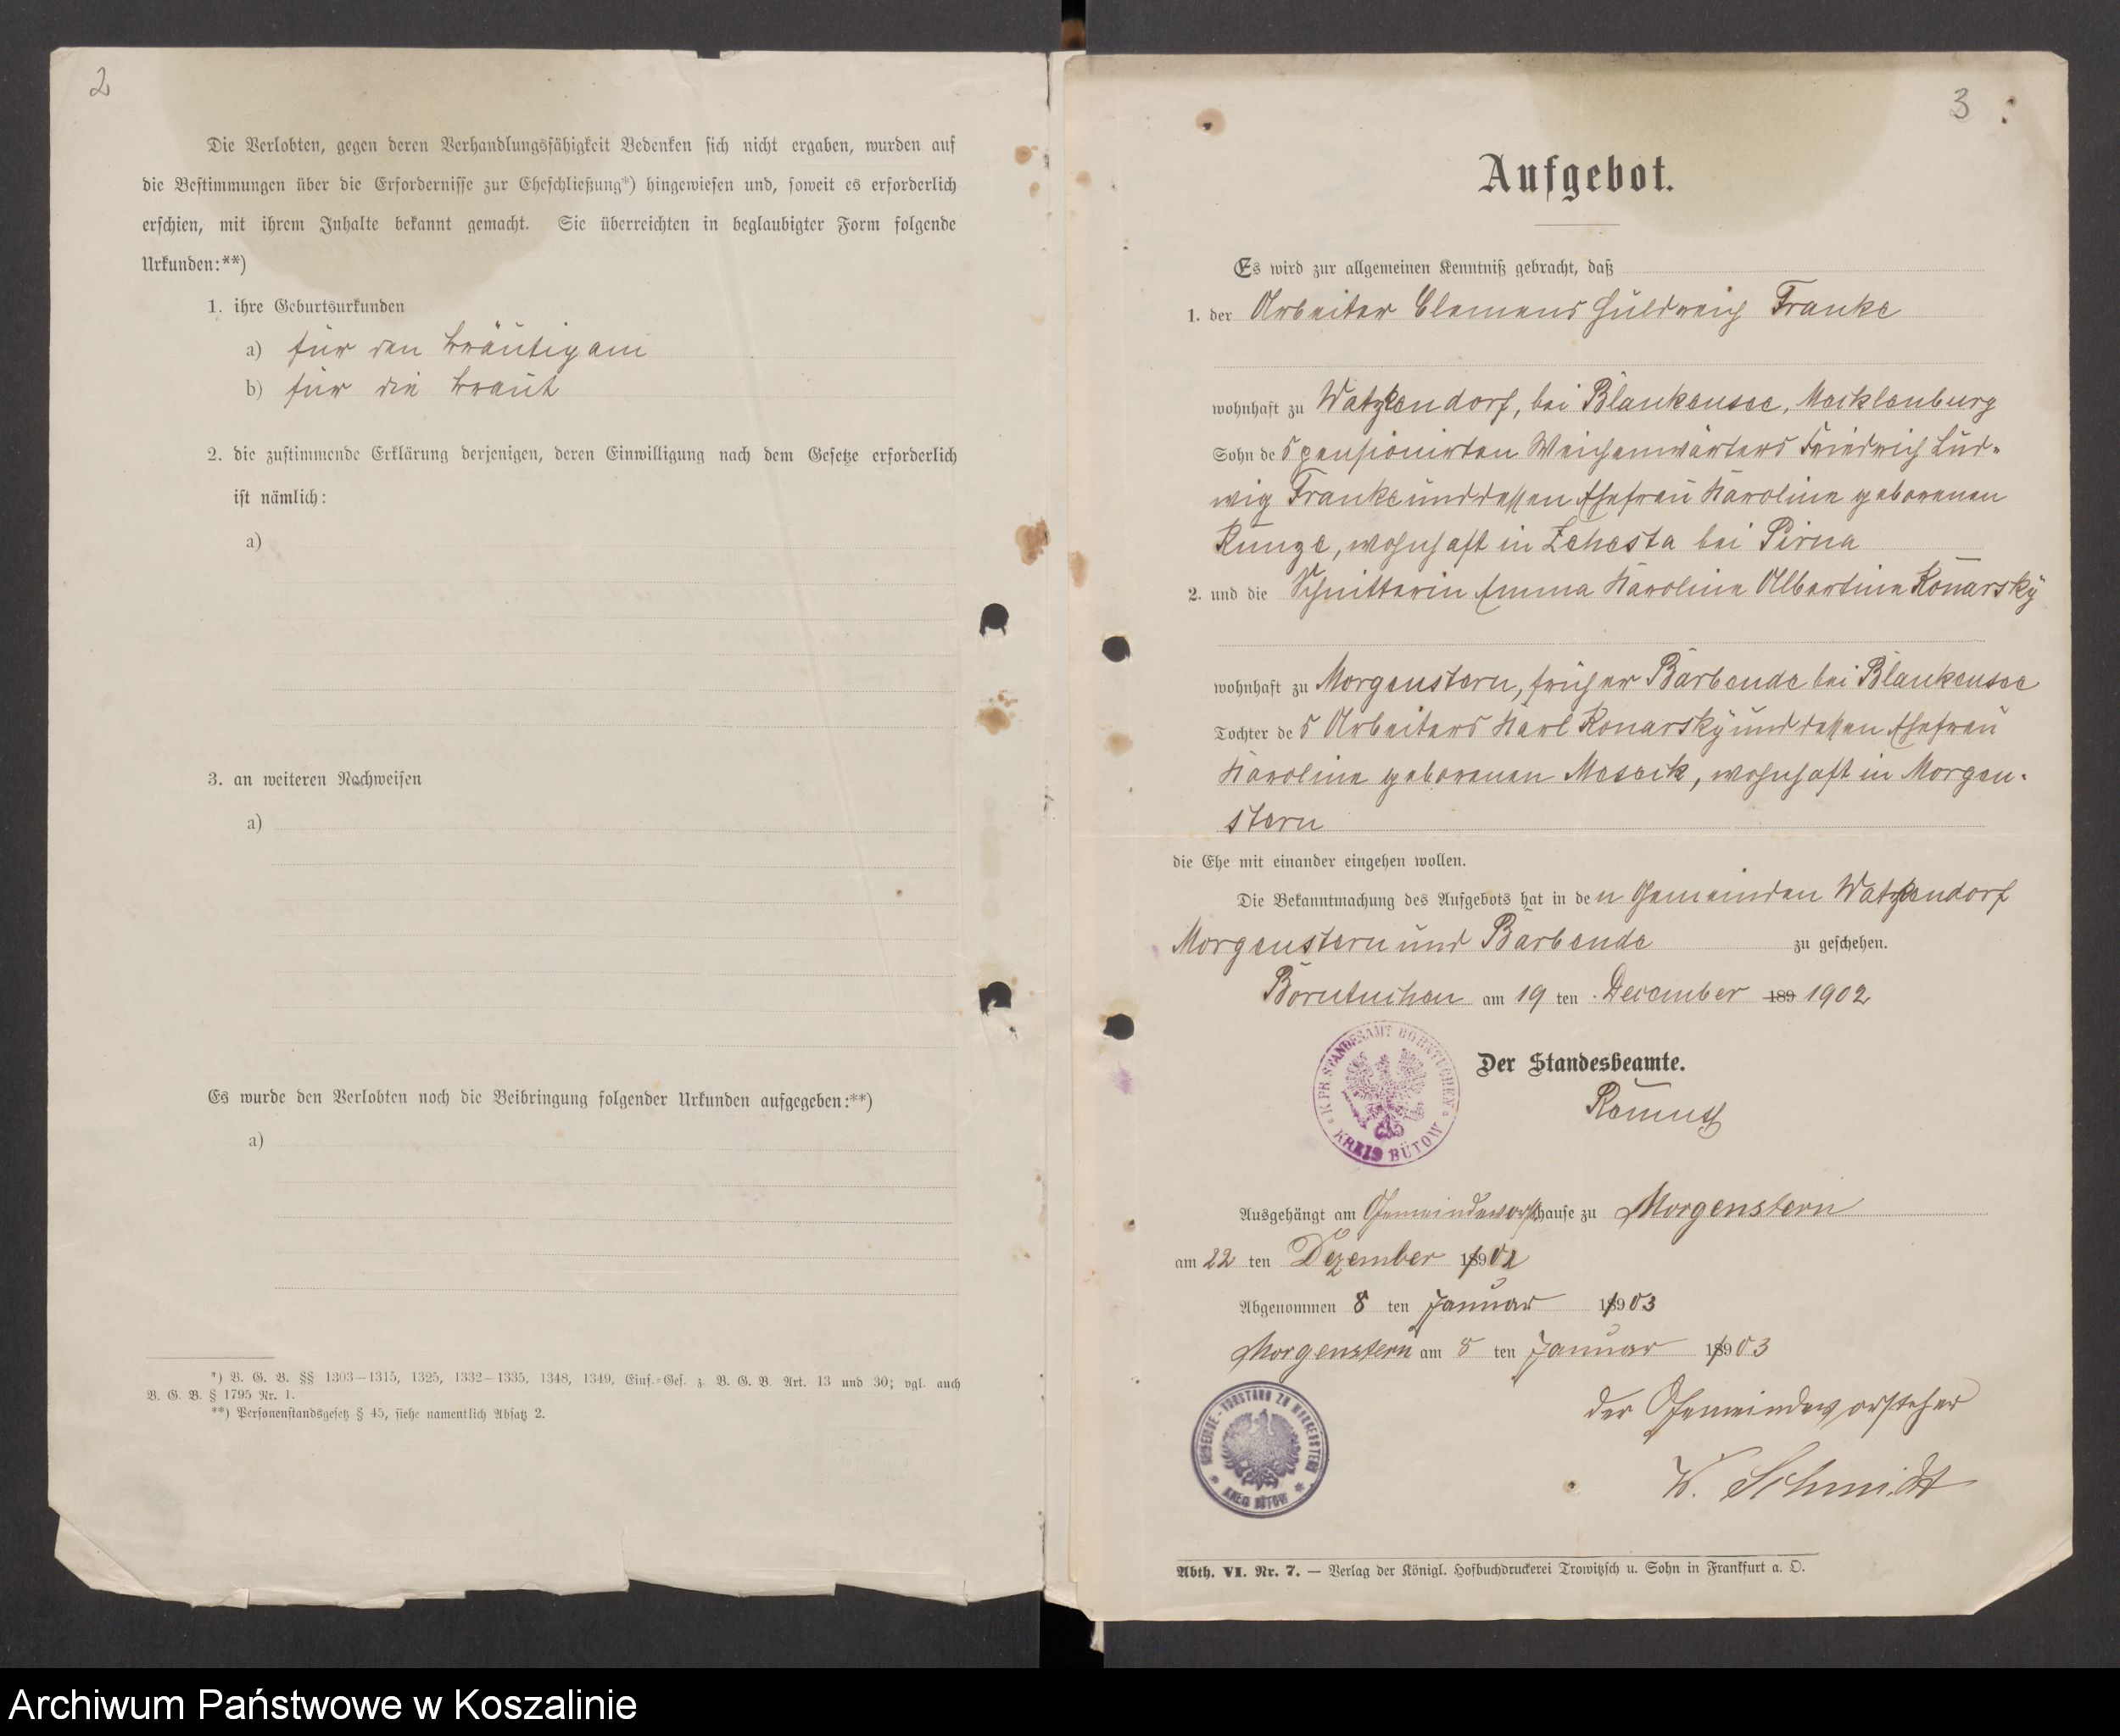 2
Die Verlobten, gegen deren Verhandlungsfähigkeit Bedenken sich nicht ergaben, wurden auf
die Bestimmungen über die Erfordernisse zur Eheschließung*) hingewiesen und, soweit es erforderlich
erschien, mit ihrem Inhalte bekannt gemacht. Sie überreichten in beglaubigter Form folgende
Urkunden:**)
1. ihre Geburtsurkunden
a) für den Bräutigam
b) für die Braut
2. die zustimmende Erklärung derjenigen, deren Einwilligung nach dem Gesetze erforderlich
ist nämlich:
a)
3. an weiteren Nachweisen
a)
Es wurde den Verlobten noch die Beibringung folgender Urkunden aufgegeben:**)
a)
*) B. G. B. §§ 1303—1315, 1325, 1332—1335, 1348, 1349, Einf.-Ges. z. B. G. B. Art. 13 und 30; vgl. auch
B. G. B. § 1795 Nr. 1.
**) Personenstandsgesetz § 45, siehe namentlich Absatz 2.
3
Aufgebot.
Es wird zur allgemeinen Kenntniß gebracht, daß
1. der Arbeiter Clemens Huldreich Franke
wohnhaft zu Watzkendorf, bei Blankensee, Mecklenburg
Sohn des pensionirten Weichenwärters Friedrich Lud-
wig Franke und dessen Ehefrau Karoline geborenen
Kunze, wohnhaft in Zehista bei Pirna
2. und die Schnitterin Emma Karoline Albertine Konarsky
wohnhaft zu Morgenstern, früher Barbende bei Blankensee
Tochter des Arbeiters Karl Konarsky und dessen Ehefrau
Karoline geborenen Meseik, wohnhaft in Morgen-
stern
die Ehe mit einander eingehen wollen.
Die Bekanntmachung des Aufgebots hat in den Gemeinden Watzkendorf
Morgenstern und Barbende zu geschehen.
Borntuchen am 19 ten December 189 1902
K. PR. STANDESAMT BORNTUCHEN
KREIS BÜTOW
Der Standesbeamte.
Ausgehängt am Gemeindevorst.hause zu Morgenstern
am 22 ten Dezember 1902
Abgenommen 8 ten Januar 1903
Morgenstern am 8 ten Januar 1903
GEMEINDE-VORSTAND ZU MORGENSTERN
KREIS BÜTOW
der Gemeindevorsteher
W. Schmidt
Abth. VI. Nr. 7. — Verlag der Königl. Hofbuchdruckerei Trowitzsch u. Sohn in Frankfurt a. O.
Archiwum Państwowe w Koszalinie